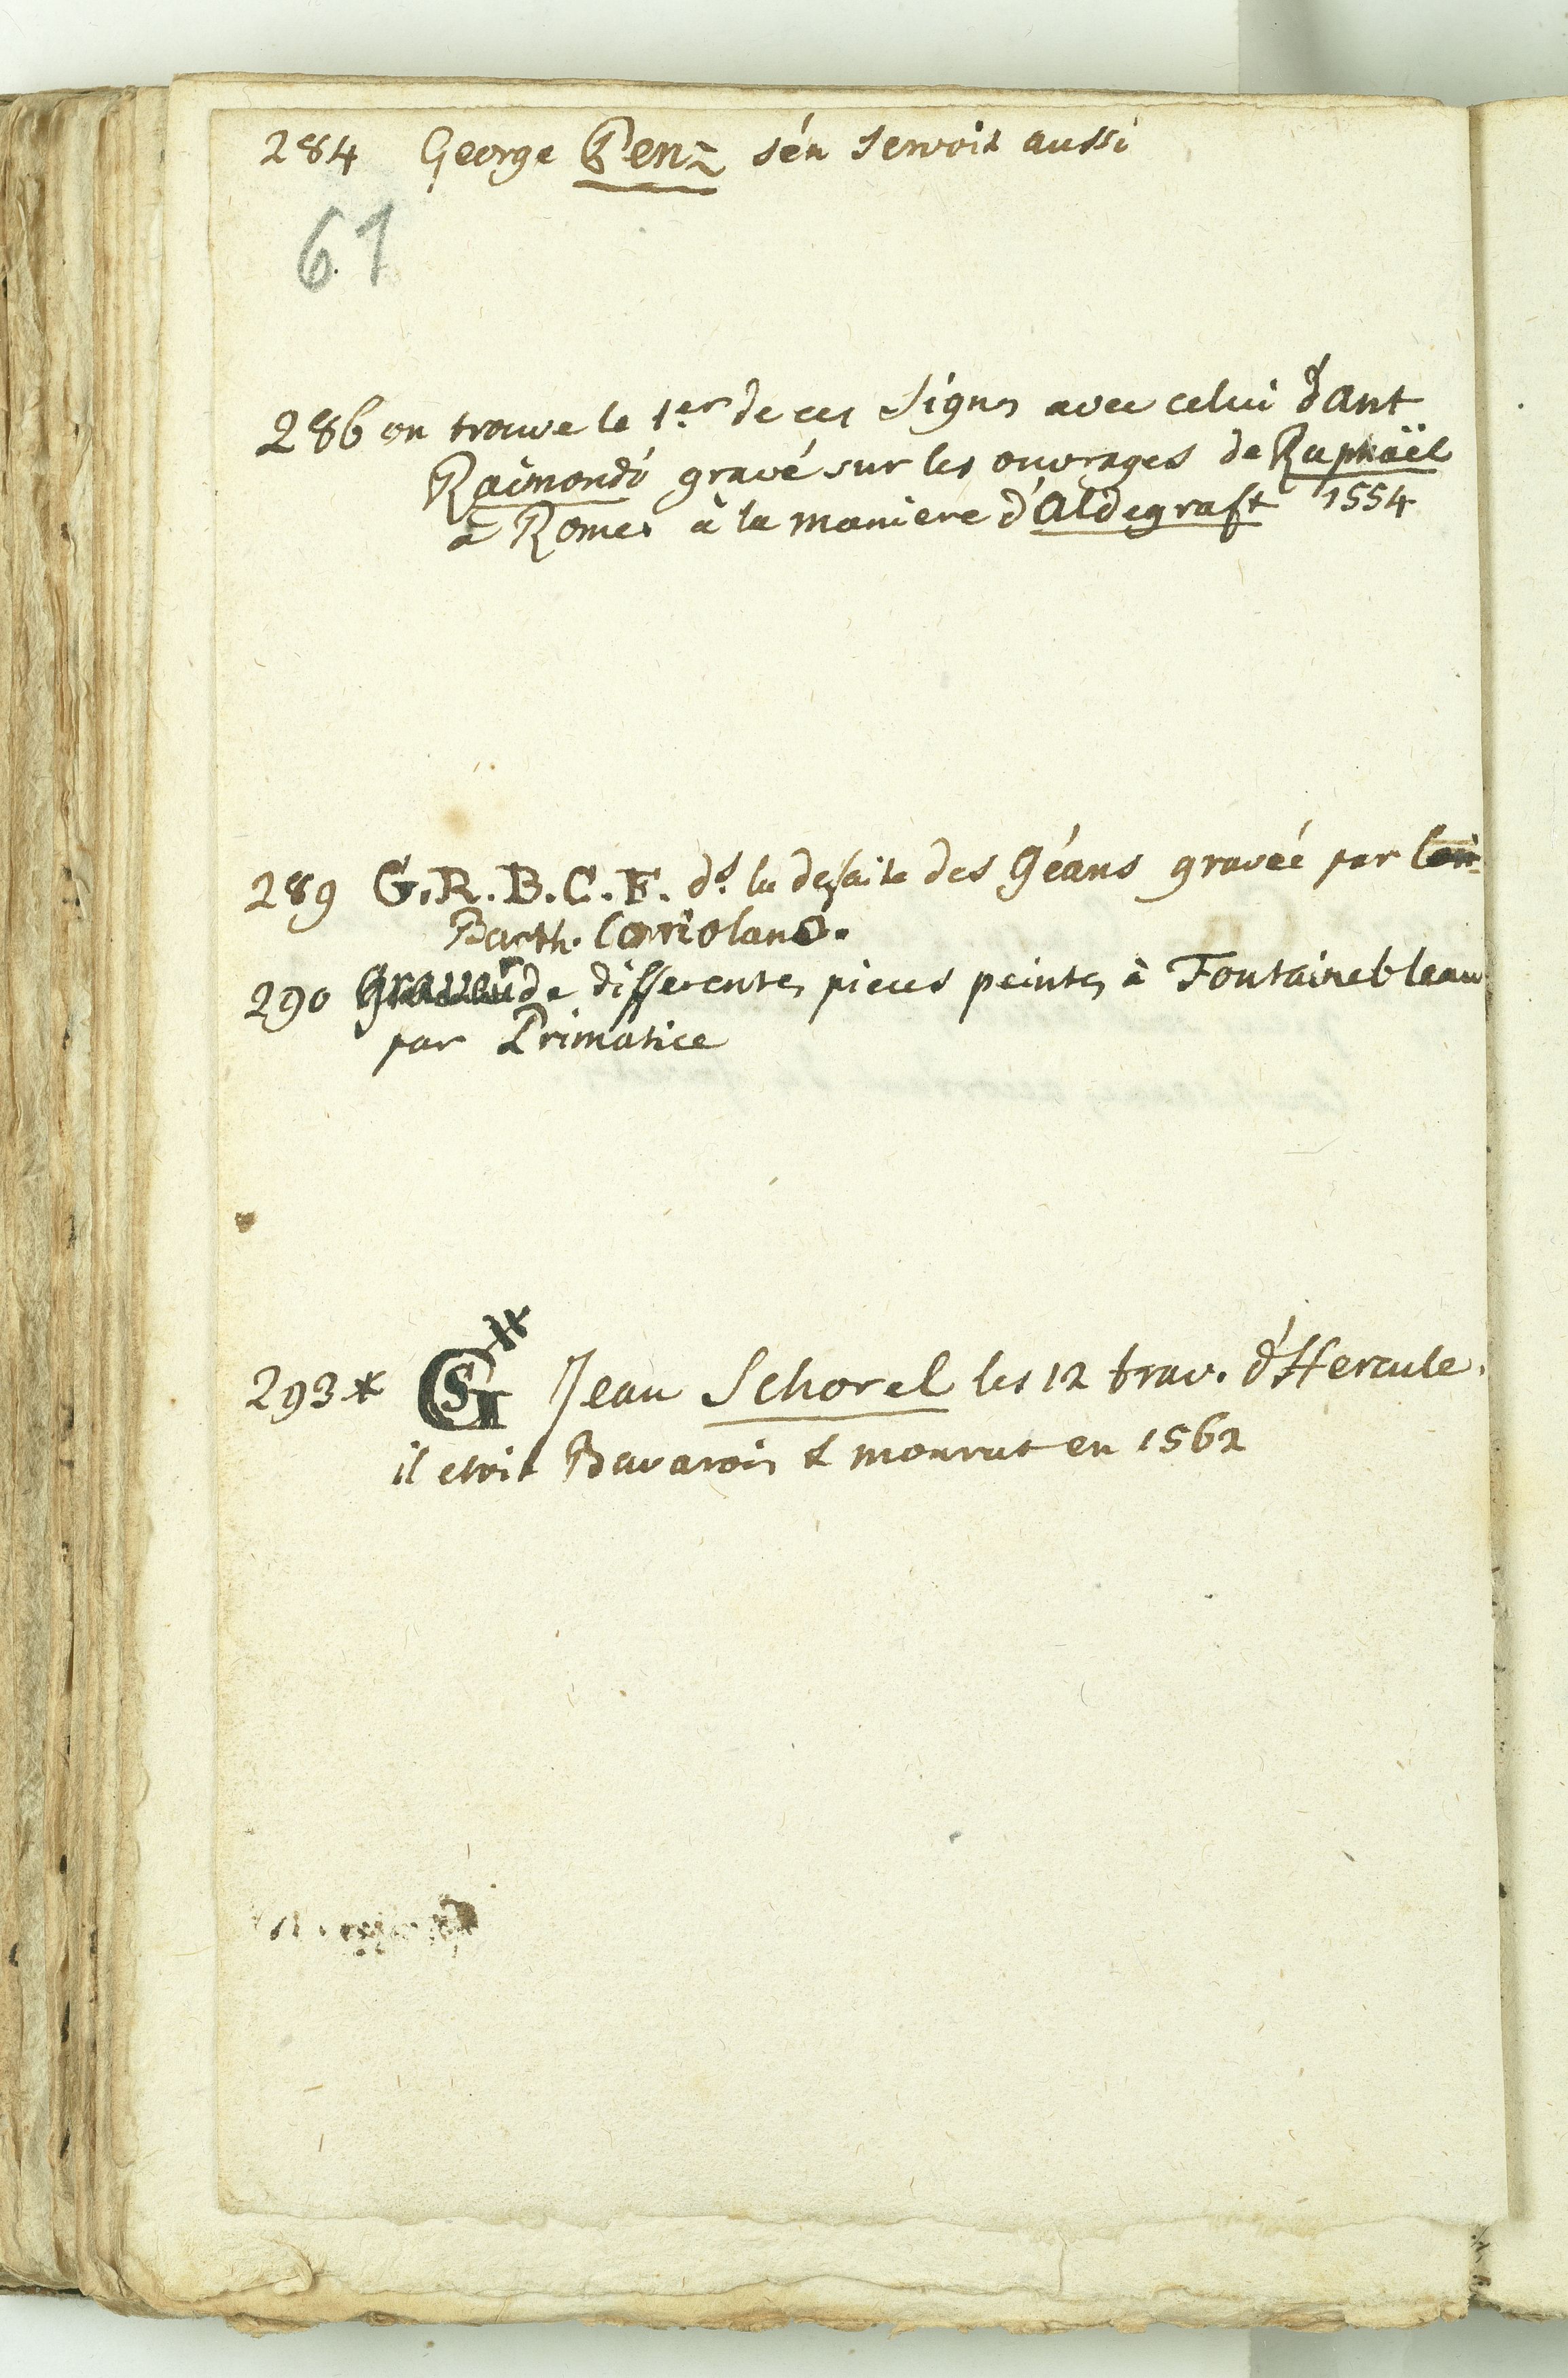 284 George Penz s'én servoit aussi
61
286 on trouve le 1.er de ces signes avec celui d'Ant
Raimondi gravé sur les ouvrages de Raphaël
à Rome. à la maniere d'Aldegraft 1554
289 G.R.B.C.F. ds. la defaite des Géans gravéé par
Barth. Coriolano.
290 Graveur de differentes pieces peintes à Fontainebleau
par Primatice
293* Jean Schorel les 12 trav. d'Hercule.
il etoit Bavarois & mourut en 1562